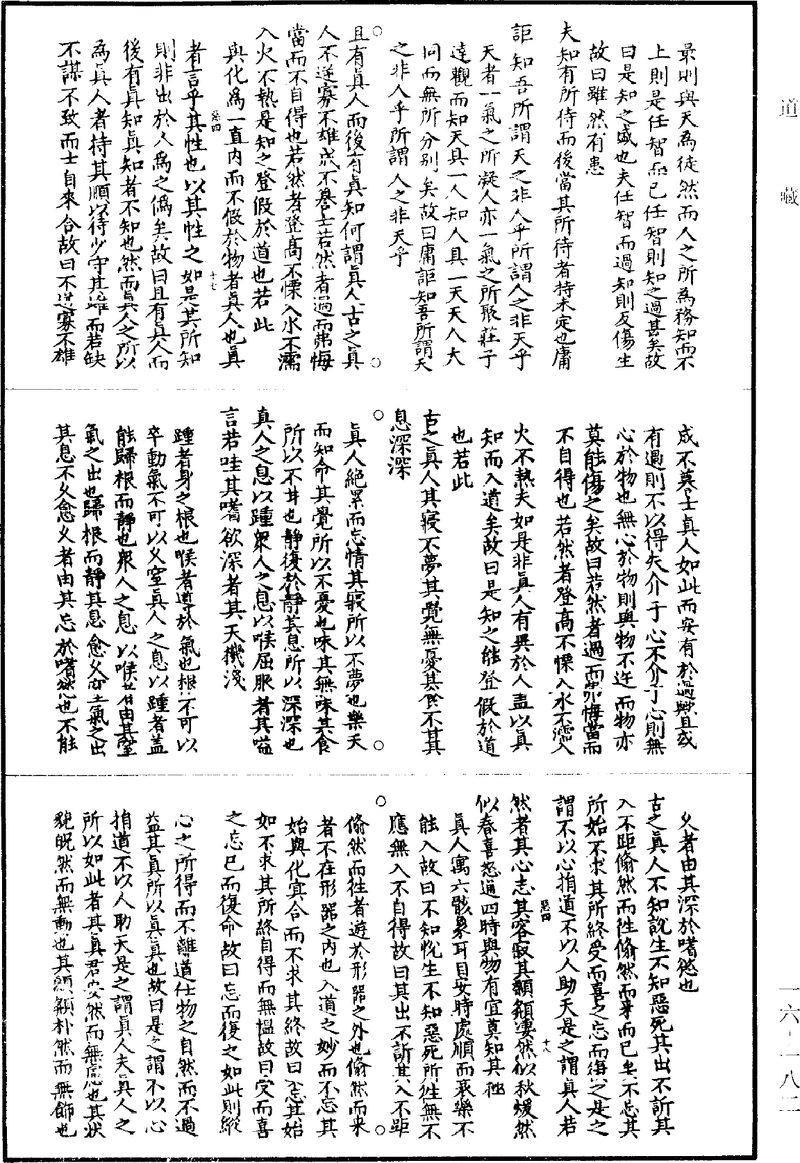 道藏
最則與天為徒然而人之所為務知而不
上則是任智而已任智則知之過甚矣故
曰是知之盛也夫任智而過知則反傷生
故曰雖然有患
夫知有所待而後當其所待者特未定也庸
詎知吾所謂天之非人乎所謂人之非天乎
天者一氣之所凝人亦一氣之所散莊子
達觀而知天具一人知人具一天天人大
同而無所分別矣故曰庸詎知吾所謂天
之非人乎所謂人之非天乎
且有真人而後有真知何謂真人古之真
人不逆寡不雄成不謩士若然者過而弗悔
當而不自得也若然者登高不慄入水不濡
入火不熱是知之登假於道也若此
與化為一直內而不假於物者真人也真
者言乎其性也以其性之如是其所知
則非出於人為之偽矣故曰且有真人而
後有真知真知者不知也然而真人之所以
為真人者持其順以待少守其雌而若缺
不謀不致而士自來合故曰不逆寡不雄
卷四
十七
成不謩士真人如此而安有於過歟且或
有過則不以得失介于心不介于心則無
心於物也無心於物則與物不迕而物亦
莫能傷之矣故曰若然者過而弗悔當而
不自得也若然者登高不慄入水不濡入
火不熱夫如是非真人有異於人盖以真
知而入道矣故曰是知之能登假於道
也若此
古之真人其寢不夢其覺無憂其食不甘其
息深深
真人絕累而忘情其寢所以不夢也樂天
而知命其覺所以不憂也味其無味其食
所以不甘也靜復於靜其息所以深深也
真人之息以踵衆人之息以喉屈服者其嗌
言若哇其嗜欲深者其天機淺
踵者身之根也喉者導於氣也根不可以
卒動氣不可以久窒真人之息以踵者蓋
能歸根而靜也衆人之息以喉者由其窒
氣之出也歸根而靜其息愈久窒氣之出
其息不久愈久者由其忘於嗜慾也不能
久者由其深於嗜慾也
古之真人不知說生不知惡死其出不訢其
入不距翛然而往翛然而來而已矣不忘其
所始不求其所終受而喜之忘而復之是之
謂不以心揖道不以人助天是之謂真人若
然者其心志其容寂其顙頯凄然似秋煖然
似春喜怒通四時與物有宜莫知其極
真人寓六骸象耳目安時處順而哀樂不
能入故曰不知悅生不知惡死所往無不
應無入不自得故曰其出不訢其入不距
翛然而往者遊於形器之外也翛然而來
者不在形器之內也入道之妙而不忘其
始與化㝠合而不求其終故曰不忘其始
如不求其所終自得而無愠故曰受而喜
之忘已而復命故曰忘而復之如此則縱
心之所得而不離道任物之自然而不過
益其真所以真真也故曰是之謂不以心
揖道不以人助天是之謂真人夫真人之
所以如此者其真君安然而無慮也其狀
貌㒵然而無動也其顙頯朴然而無飾也
卷四
十八
一六-一八二